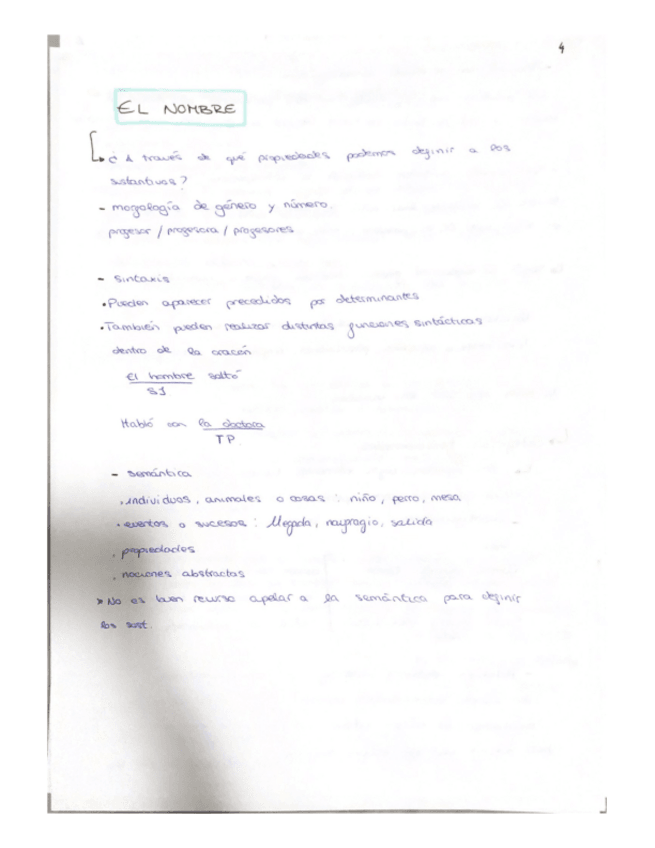 4
EL NOMBRE
¿A través de qué propiedades podemos definir a los
sustantivos?
- morfología de género y número.
profesor / profesora / profesores
- sintaxis
• Pueden aparecer precedidos por determinantes
• También pueden realizar distintas funciones sintácticas
dentro de la oración
El hombre saltó
SJ
Habló con la doctora
TP.
- semántica
. individuos, animales o cosas : niño, perro, mesa
• eventos o sucesos : llegada, naufragio, salida
. propiedades
. nociones abstractas
No es buen recurso apelar a la semántica para definir
los sust.